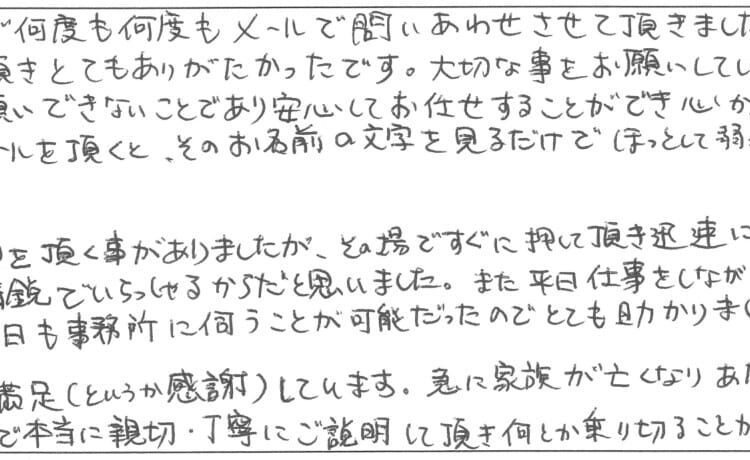 で何度も何度もメールで問いあわせさせて頂きました
頂きとてもありがたかったです。大切な事をお願いしてい
願いできないことであり安心してお任せすることができ心か
ールを頂くと、そのお名前の文字を見るだけでほっとして弱
を頂く事がありましたが、その場ですぐに押して頂き迅速に
精鋭でいらっしゃるからだと思いました。また平日仕事をしなが
日も事務所に伺うことが可能だったのでとても助かりまし
満足(というか感謝)しています。急に家族が亡くなりあ
で本当に親切・丁寧にご説明して頂き何とか乗り切ることが